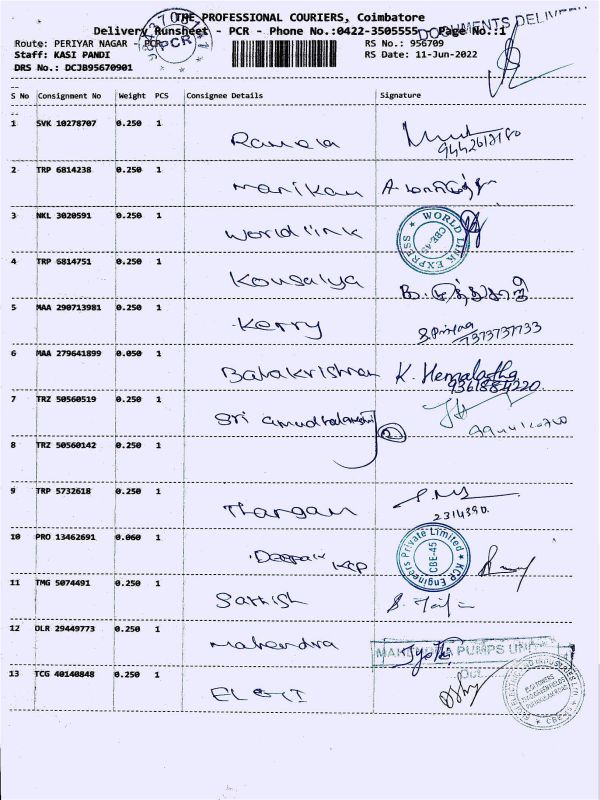 THE PROFESSIONAL COURIERS, Coimbatore
DOCUMENTS DELIVER
Delivery Runsheet - PCR - Phone No.:0422-3505555 Page No.:1
Route: PERIYAR NAGAR - PCR RS No.: 956709
PCR
Staff: KASI PANDI RS Date: 11-Jun-2022
DRS No.: DCJB95670901
S No Consignment No Weight PCS Consignee Details Signature
1 SVK 10278707 0.250 1 Ramela
2 TRP 6814238 0.250 1 Marikan
3 NKL 3020591 0.250 1 World link
WORLD LINK EXPRESS CBE-45
4 TRP 6814751 0.250 1 Kousalya
5 MAA 290713981 0.250 1 Kerry
7373737733
6 MAA 279641899 0.050 1 Balakrishnan K. Hemalatha
9361884220
7 TRZ 50560519 0.250 1 Sri
2
8 TRZ 50560142 0.250 1
9 TRP 5732618 0.250 1 Thangam
2314390
10 PRO 13462691 0.060 1 Deepak KCP
KCP Engineers Private Limited CBE-45
11 TMG 5074491 0.250 1 Sathish
12 DLR 29449773 0.250 1 Mahendra Jyothi
PUMPS
13 TCG 40140848 0.250 1 ELGI